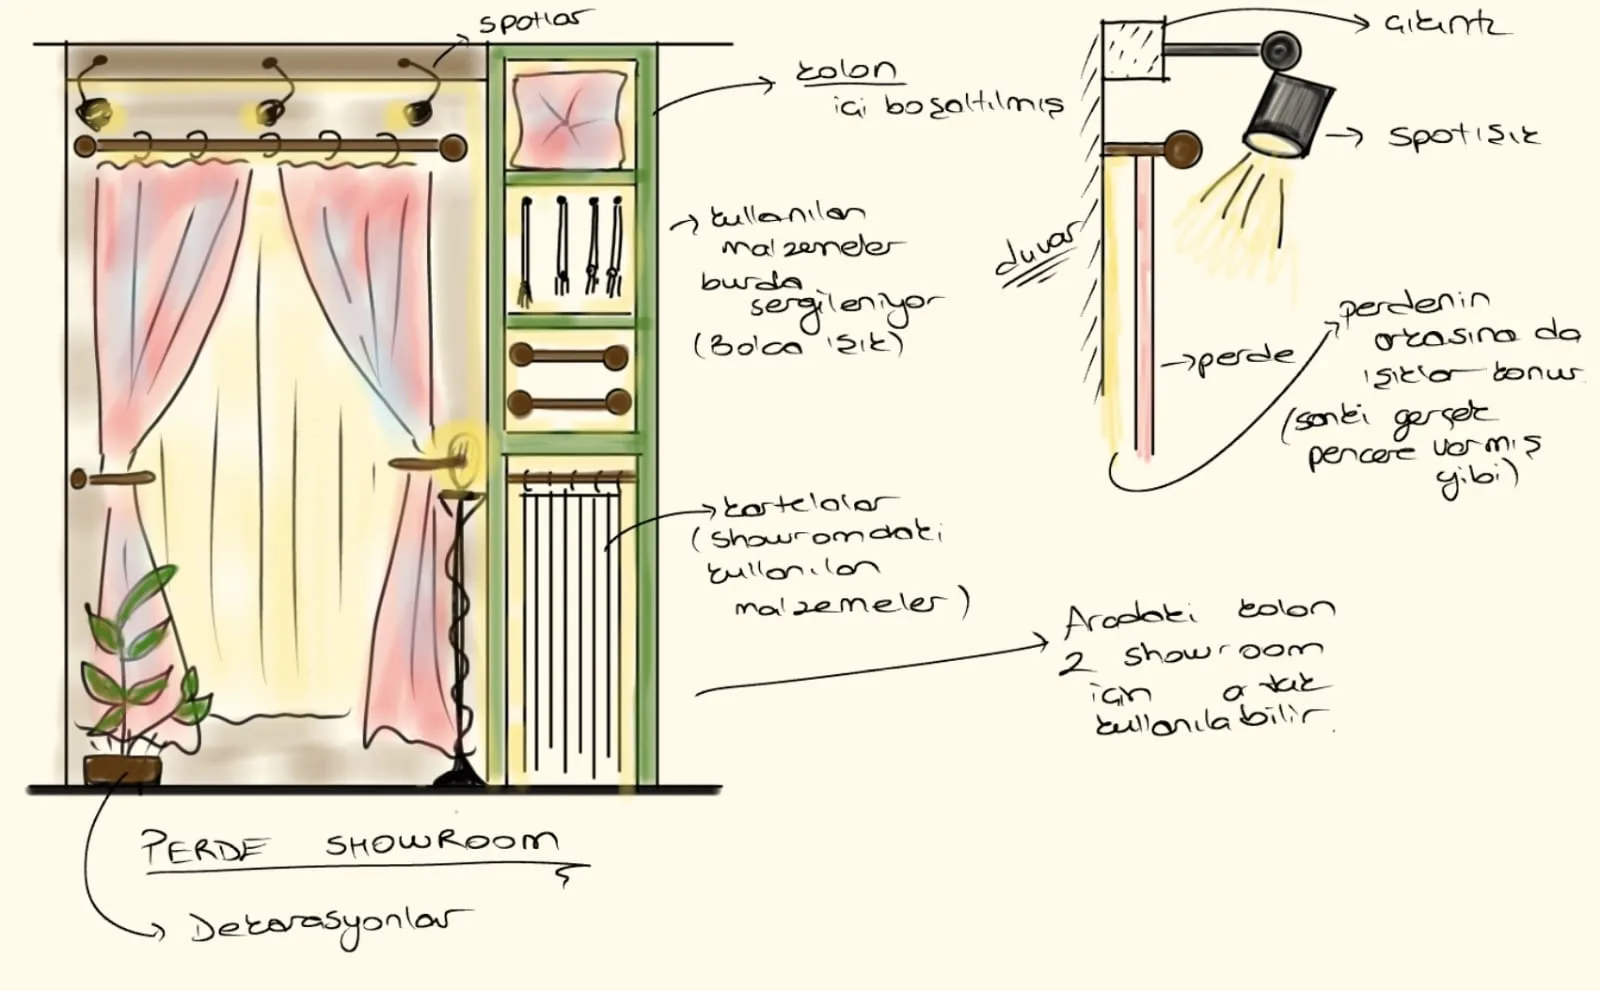 spotlar
kolon
içi boşaltılmış
kullanılan
malzemeler
burda
sergileniyor
(Bolca ışık)
kartelalar
(showromdaki
kullanılan
malzemeler)
Aradaki kolon
2 showroom
için ortak
kullanılabilir.
PERDE SHOWROOM
Dekorasyonlar
çıkıntı
spot ışık
duvar
perde
perdenin
arkasına da
ışıklar konur.
(sanki gerçek
pencere varmış
gibi)